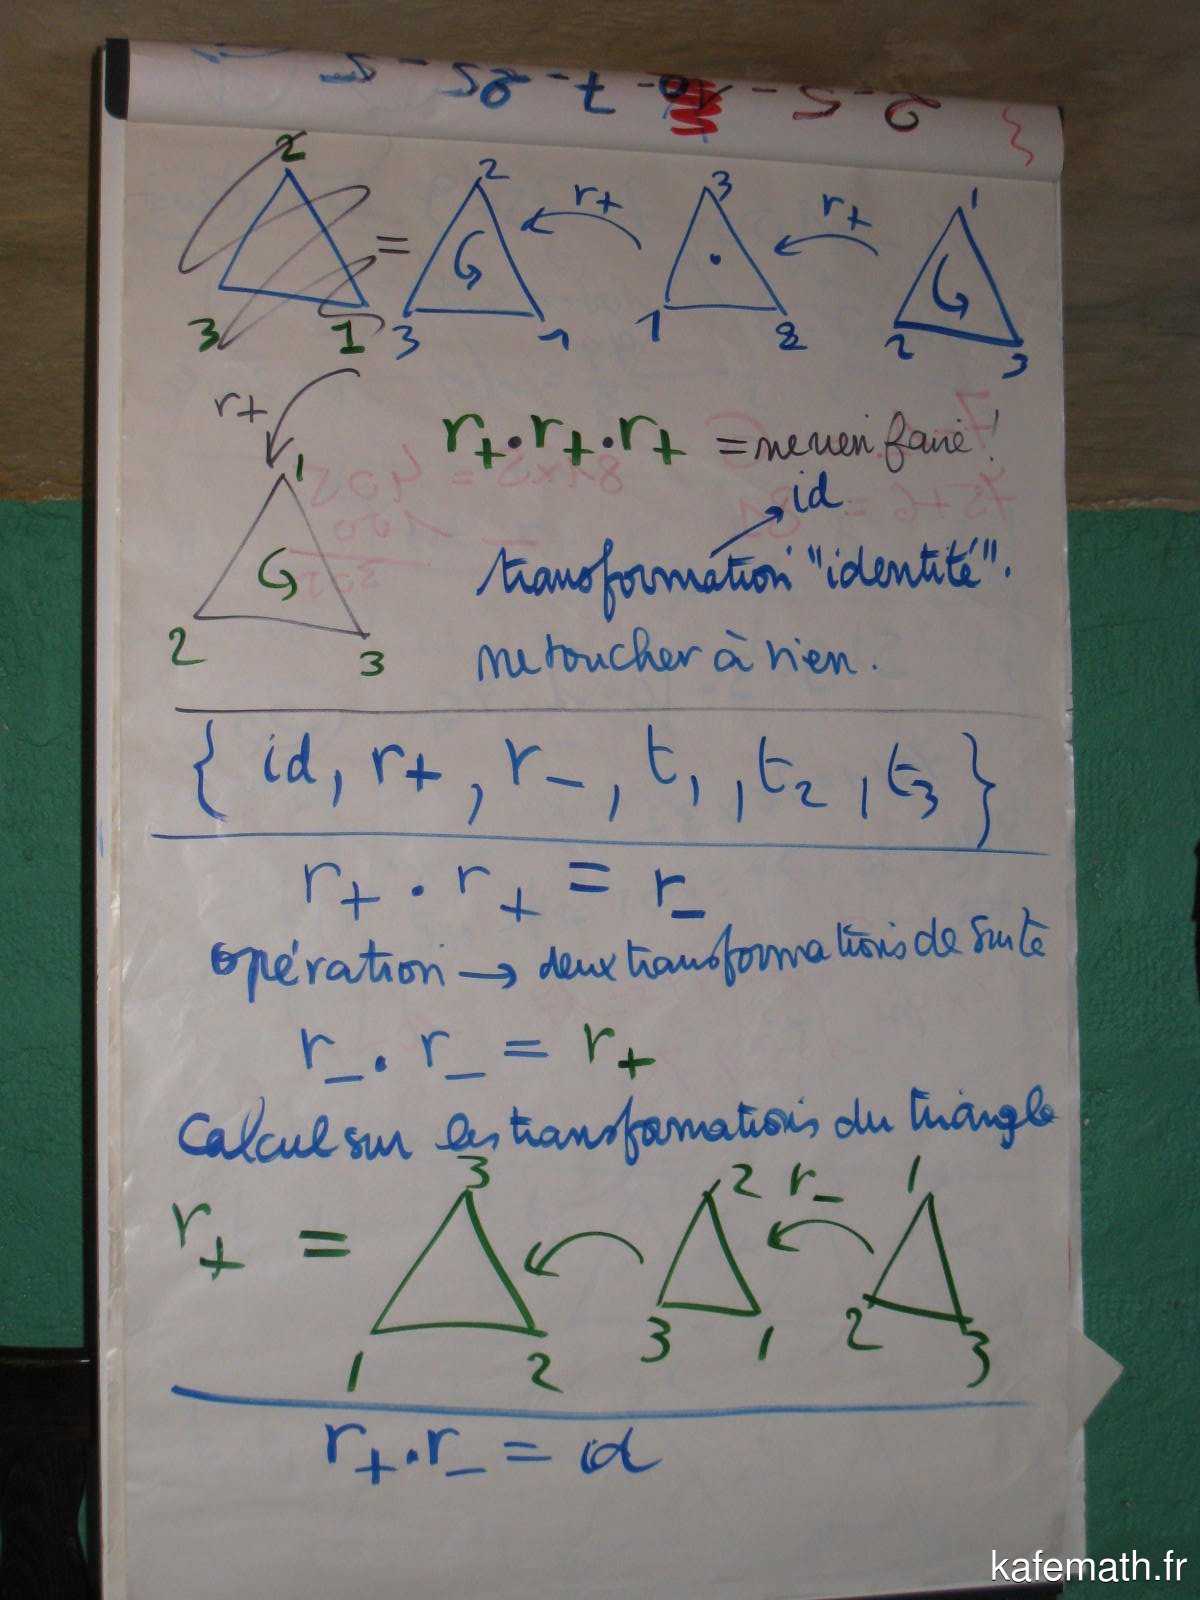 2 - 5 - 10 - 7 - 85 - 5
2 2 r+ 3 r+ 1
=
3 1 3 1 1 2 2 3
r+
r+ . r+ . r+ = ne rien faire !
1
id
transformation "identité".
2 3
ne toucher à rien.
{ id, r+, r-, t1, t2, t3 }
r+ . r+ = r-
opération → deux transformations de suite
r- . r- = r+
Calcul sur les transformations du triangle
3 2 r- 1
r+ =
1 2 3 1 2 3
r+ . r- = id
kafemath.fr